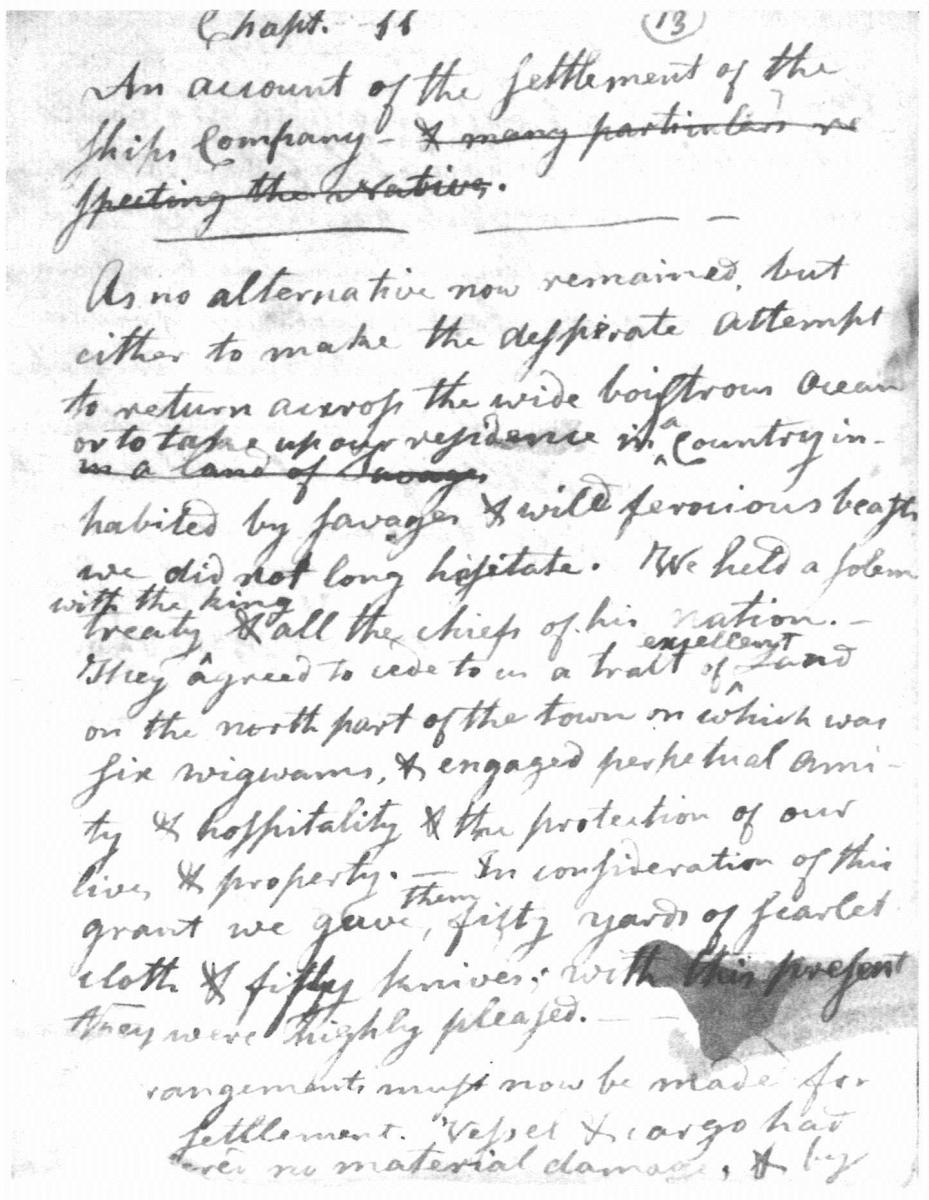 Chapt. 11 (13)
An account of the settlement of the
ships Company - & many particulars re
specting the Natives.
As no alternative now remained, but
either to make the desperate attempt
to return across the wide boistrous ocean
or to take up our residence in a Country in-
in a land of Savages
habited by savages & wild ferocious beasts
we did not long hesitate. We held a solem
with the king
treaty & all the chiefs of his nation. -
excellent
They agreed to cede to us a tract of Land
on the north part of the town on which was
six wigwams, & engaged perpetual ami-
ty & hospitality & the protection of our
lives & property. - In consideration of this
them
grant we gave, fifty yards of scarlet
cloth & fifty knives; with this present
they were highly pleased. - -
rangements must now be made for
settlement. Vessel & cargo had
no material damage, & by